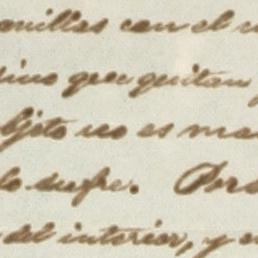 anillas con el
sino que quitan
bjeto no es ma
lo sufre. Por
del interior, y